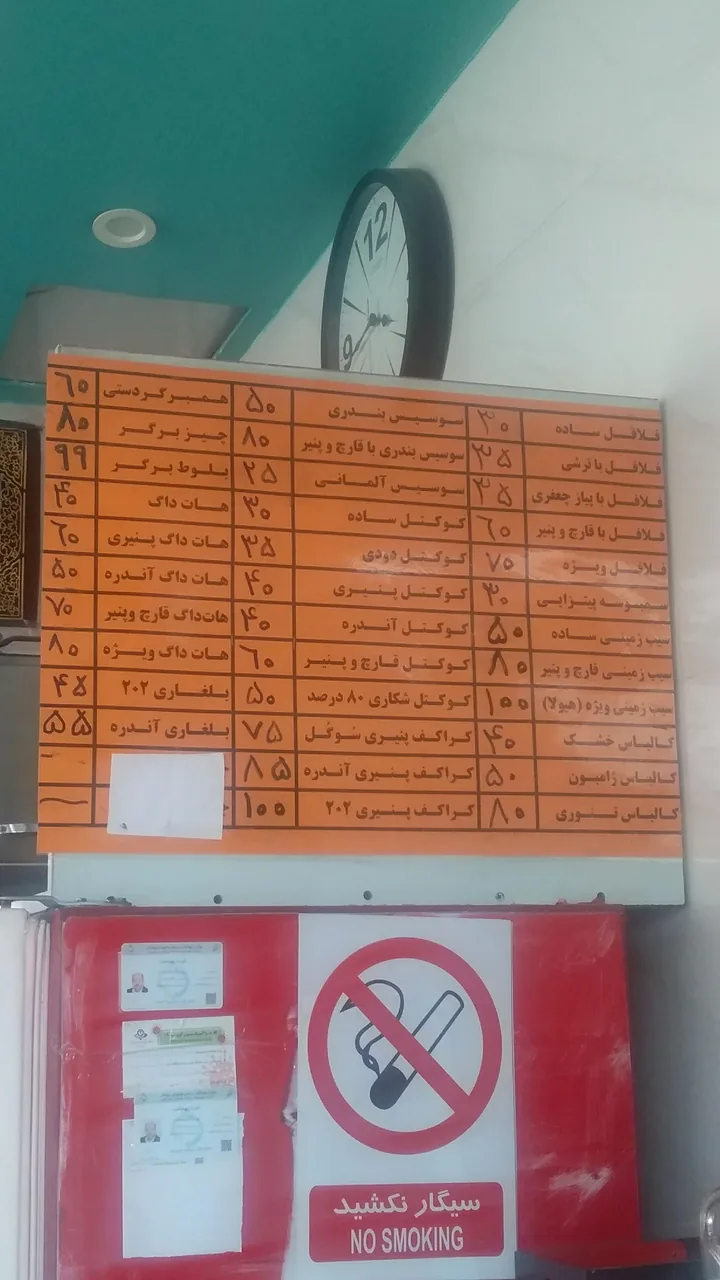 12
9
فلافل ساده ۳۰ سوسیس بندری ۵۰ همبرگردستی ۶۰
فلافل با ترشی ۳۵ سوسیس بندری با قارچ و پنیر ۸۰ چیز برگر ۸۰
فلافل با پیاز جعفری ۳۵ سوسیس آلمانی ۲۵ بلوط برگر ۹۹
فلافل با قارچ و پنیر ۶۰ کوکتل ساده ۳۰ هات داگ ۴۰
فلافل ویژه ۷۰ کوکتل دودی ۳۵ هات داگ پنیری ۶۰
سمبوسه پیتزایی ۳۰ کوکتل پنیری ۴۰ هات داگ آندره ۵۰
سیب زمینی ساده ۵۰ کوکتل آندره ۴۰ هات‌داگ قارچ وپنیر ۷۰
سیب زمینی قارچ و پنیر ۸۰ کوکتل قارچ و پنیر ۶۰ هات داگ ویژه ۸۰
سیب زمینی ویژه (هیولا) ۱۰۰ کوکتل شکاری ۸۰ درصد ۵۰ بلغاری ۲۰۲ ۴۵
کالباس خشک ۴۰ کراکف پنیری سوگل ۷۵ بلغاری آندره ۵۵
کالباس ژامبون ۵۰ کراکف پنیری آندره ۸۵
کالباس تنوری ۸۰ کراکف پنیری ۲۰۲ ۱۰۰
سیگار نکشید
NO SMOKING